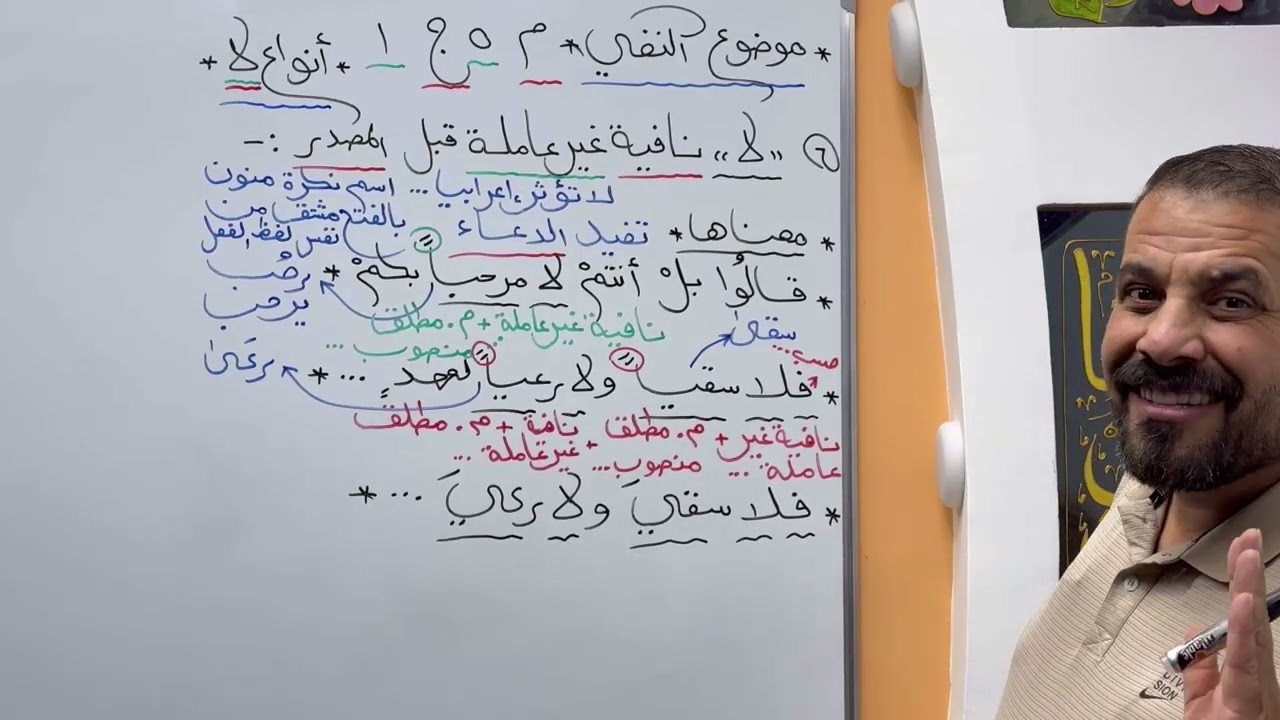 * موضوع النفي * م ٥ ج ١ * أنواع لا *
٦ «لا» نافية غير عاملة قبل المصدر :-
لا تؤثر إعرابيا ... اسم نكرة منون
بالفتح مشتق من
نفس لفظ الفعل
* معناها * تفيد الدعاء
* قالُوا بلْ أنتمْ لا مرحباً بكمْ *
رحُب
يرحب
نافية غير عاملة + م. مطلق
منصوب ...
سقى
حسب..
* فلا سقياً ولا رعياً لعهدٍ ... *
رعَى
نافية غير + م. مطلق نافية + م. مطلق
عاملة ... منصوب ... غير عاملة ...
* فلا سقيَ ولا رعيَ ... *
CIVI
SION